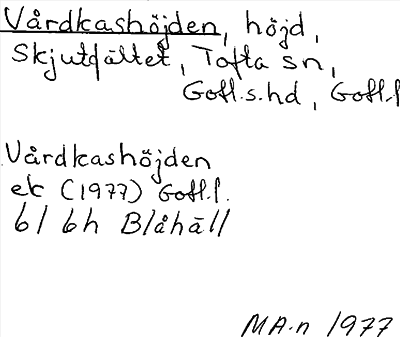 Vårdkashöjden, höjd,
Skjutfältet, Tofta sn,
Gotl.s.hd, Gotl.l
Vårdkashöjden
ek (1977) Gotl.l.
6I 6h Blåhäll
MA.n 1977